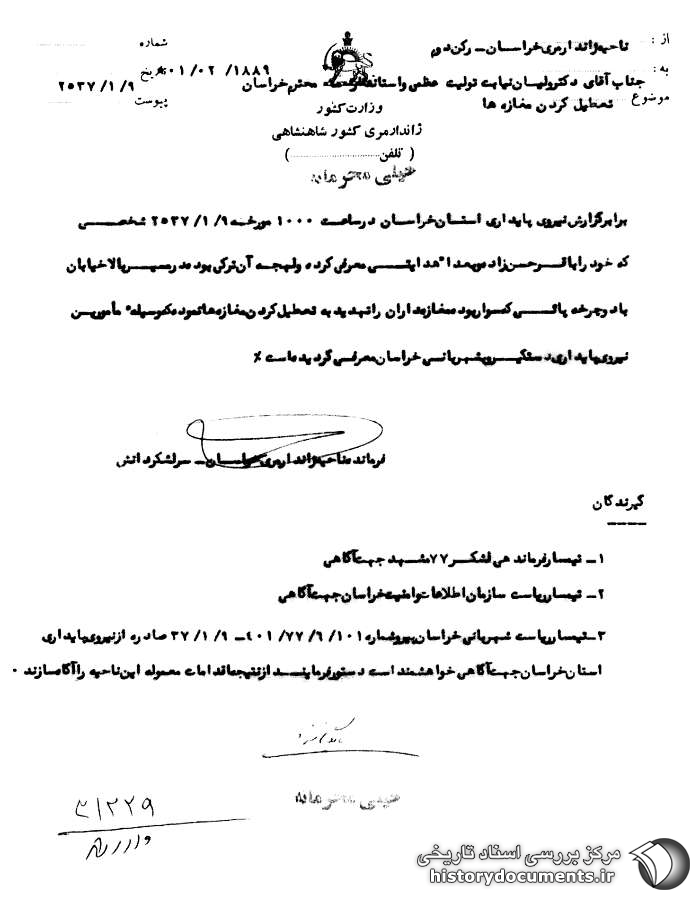 از : ناحیه ژاندارمری خراسان ـ رکن دوم
شماره ۴۰۱/۰۲/۱۸۸۹
به : جناب آقای دکتر ولیان نیابت تولیت عظمی و استاندار محترم خراسان
تاریخ ۲۵۳۷/۱/۹
موضوع تعطیل کردن مغازه ها
پیوست
وزارت کشور
ژاندارمری کشور شاهنشاهی
( تلفن .................... )
خیلی محرمانه
برابر گزارش نیروی پایداری استان خراسان در ساعت ۱۰۰۰ مورخه ۲۵۳۷/۱/۹ شخصی
که خود را باقر حسن زاده معرفی کرده ولهجه آن ترکی بوده در مسیر بالا خیابان
با دوچرخه پائی که سوار بوده مغازه داران را تهدید به تعطیل کردن مغازه ها نموده که بوسیله مأمورین
نیروی پایداری دستگیر و بشهربانی خراسان معرفی گردیده است ٪
فرمانده ناحیه ژاندارمری خراسان ـ سرلشکر دانش
گیرندگان
۱ـ تیمسار فرماندهی لشکر ۷۷ مشهد جهت آگاهی
۲ـ تیمسار ریاست سازمان اطلاعات و امنیت خراسان جهت آگاهی
۳ـ تیمسار ریاست شهربانی خراسان پیرو شماره ۴۰۱/۷۷/۶/۱۰۱ ـ ۳۷/۱/۹ صادره از نیروی پایداری
استان خراسان جهت آگاهی خواهشمند است دستور فرمایند از نتیجه اقدامات معموله این ناحیه را آگاه سازند .
خیلی محرمانه
۳۱۲۲۹
مرکز بررسی اسناد تاریخی
historydocuments.ir